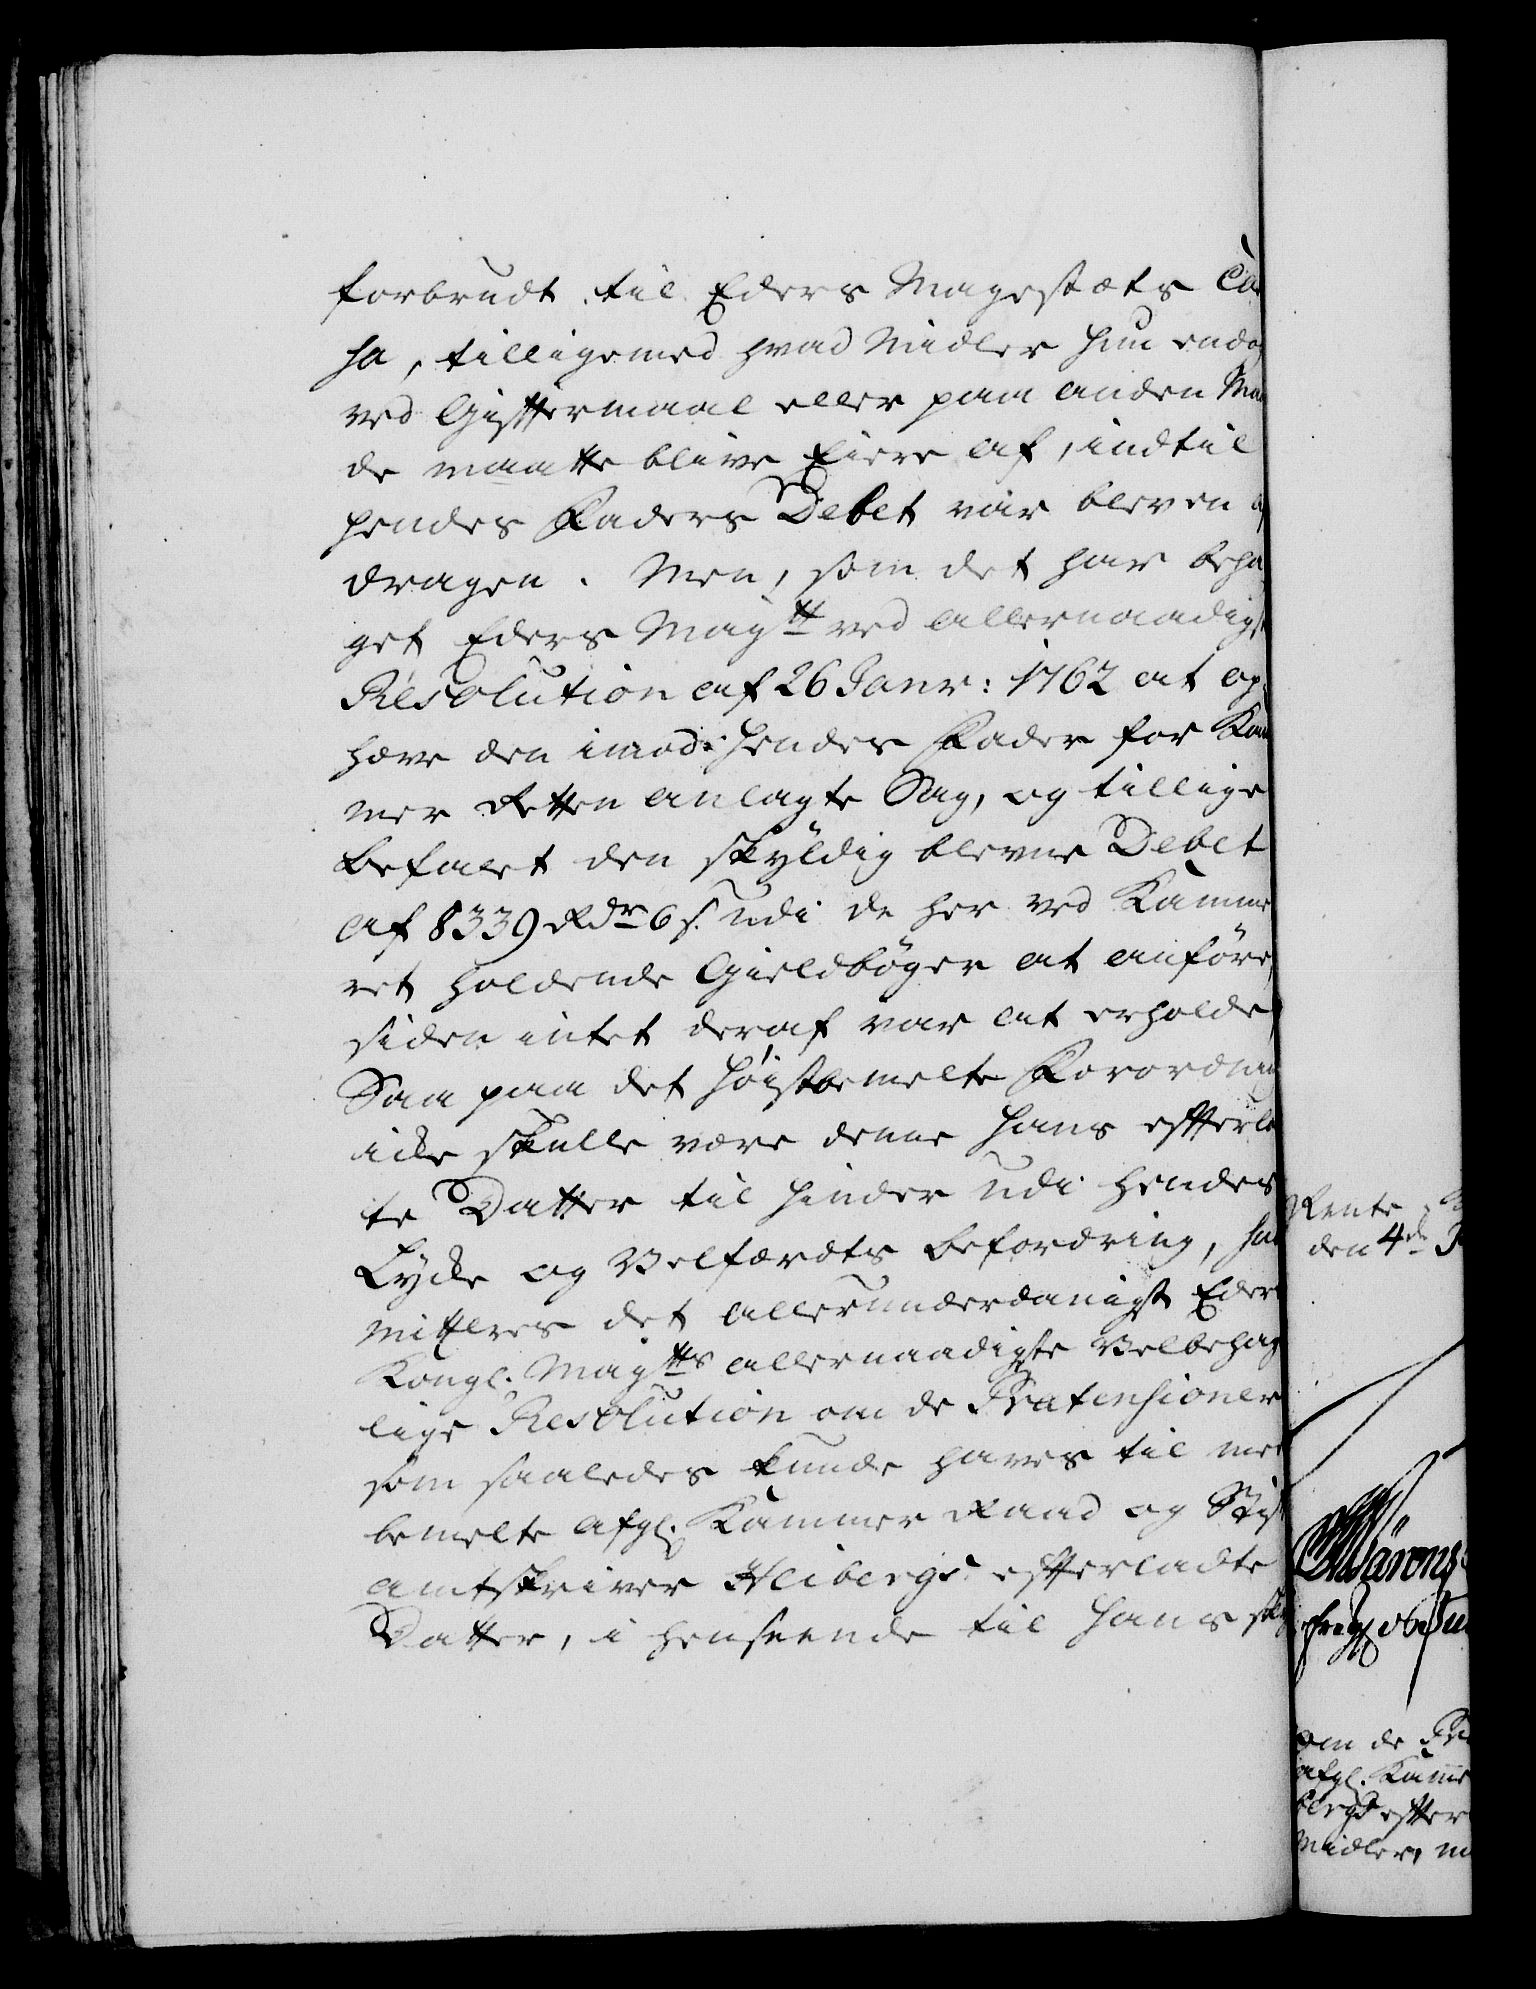 forbrudt til Eders Mayestæts Cas
sa, tilligemed hvad Midler hun endog
ved Gifftermaal eller paa anden Maa
de maatte blive Eiere af, indtil
hendes Faders Debet var bleven af
dragen. Men, som det har beha
get Eders Mayᵗᵗ ved allernaadigst
Resolution af 26 Janr: 1762 at op
hæve den imod hendes Fader for Kam
mer Retten anlagte Sag, og tillige
befalet den skyldig blevne Debet
af 8339 Rdr 6 s. udi de her ved Kamme
ret holdende Gieldbøger at anføre,
siden intet deraf var at erholde,
Saa paa det høistbemelte Forordning
icke skulle være denne hans effterla
te Datter til hinder udi hendes
Lycke og Velfærdts befordring, hen
mitteres det allerunderdanigst Eders
Kongl. Mayᵗᵗˢ allernaadigste Velbehag
lige Resolution om de Prætensioner
som saaledes kunde haves til mer
bemelte afgl. Kammer Raad og Stift
amtskriver Heibergs effterladte
Datter, i henseende til hans sky
Rente
den 4de
om de Præ
afgl. Kamme
bergs effter
Midler, m